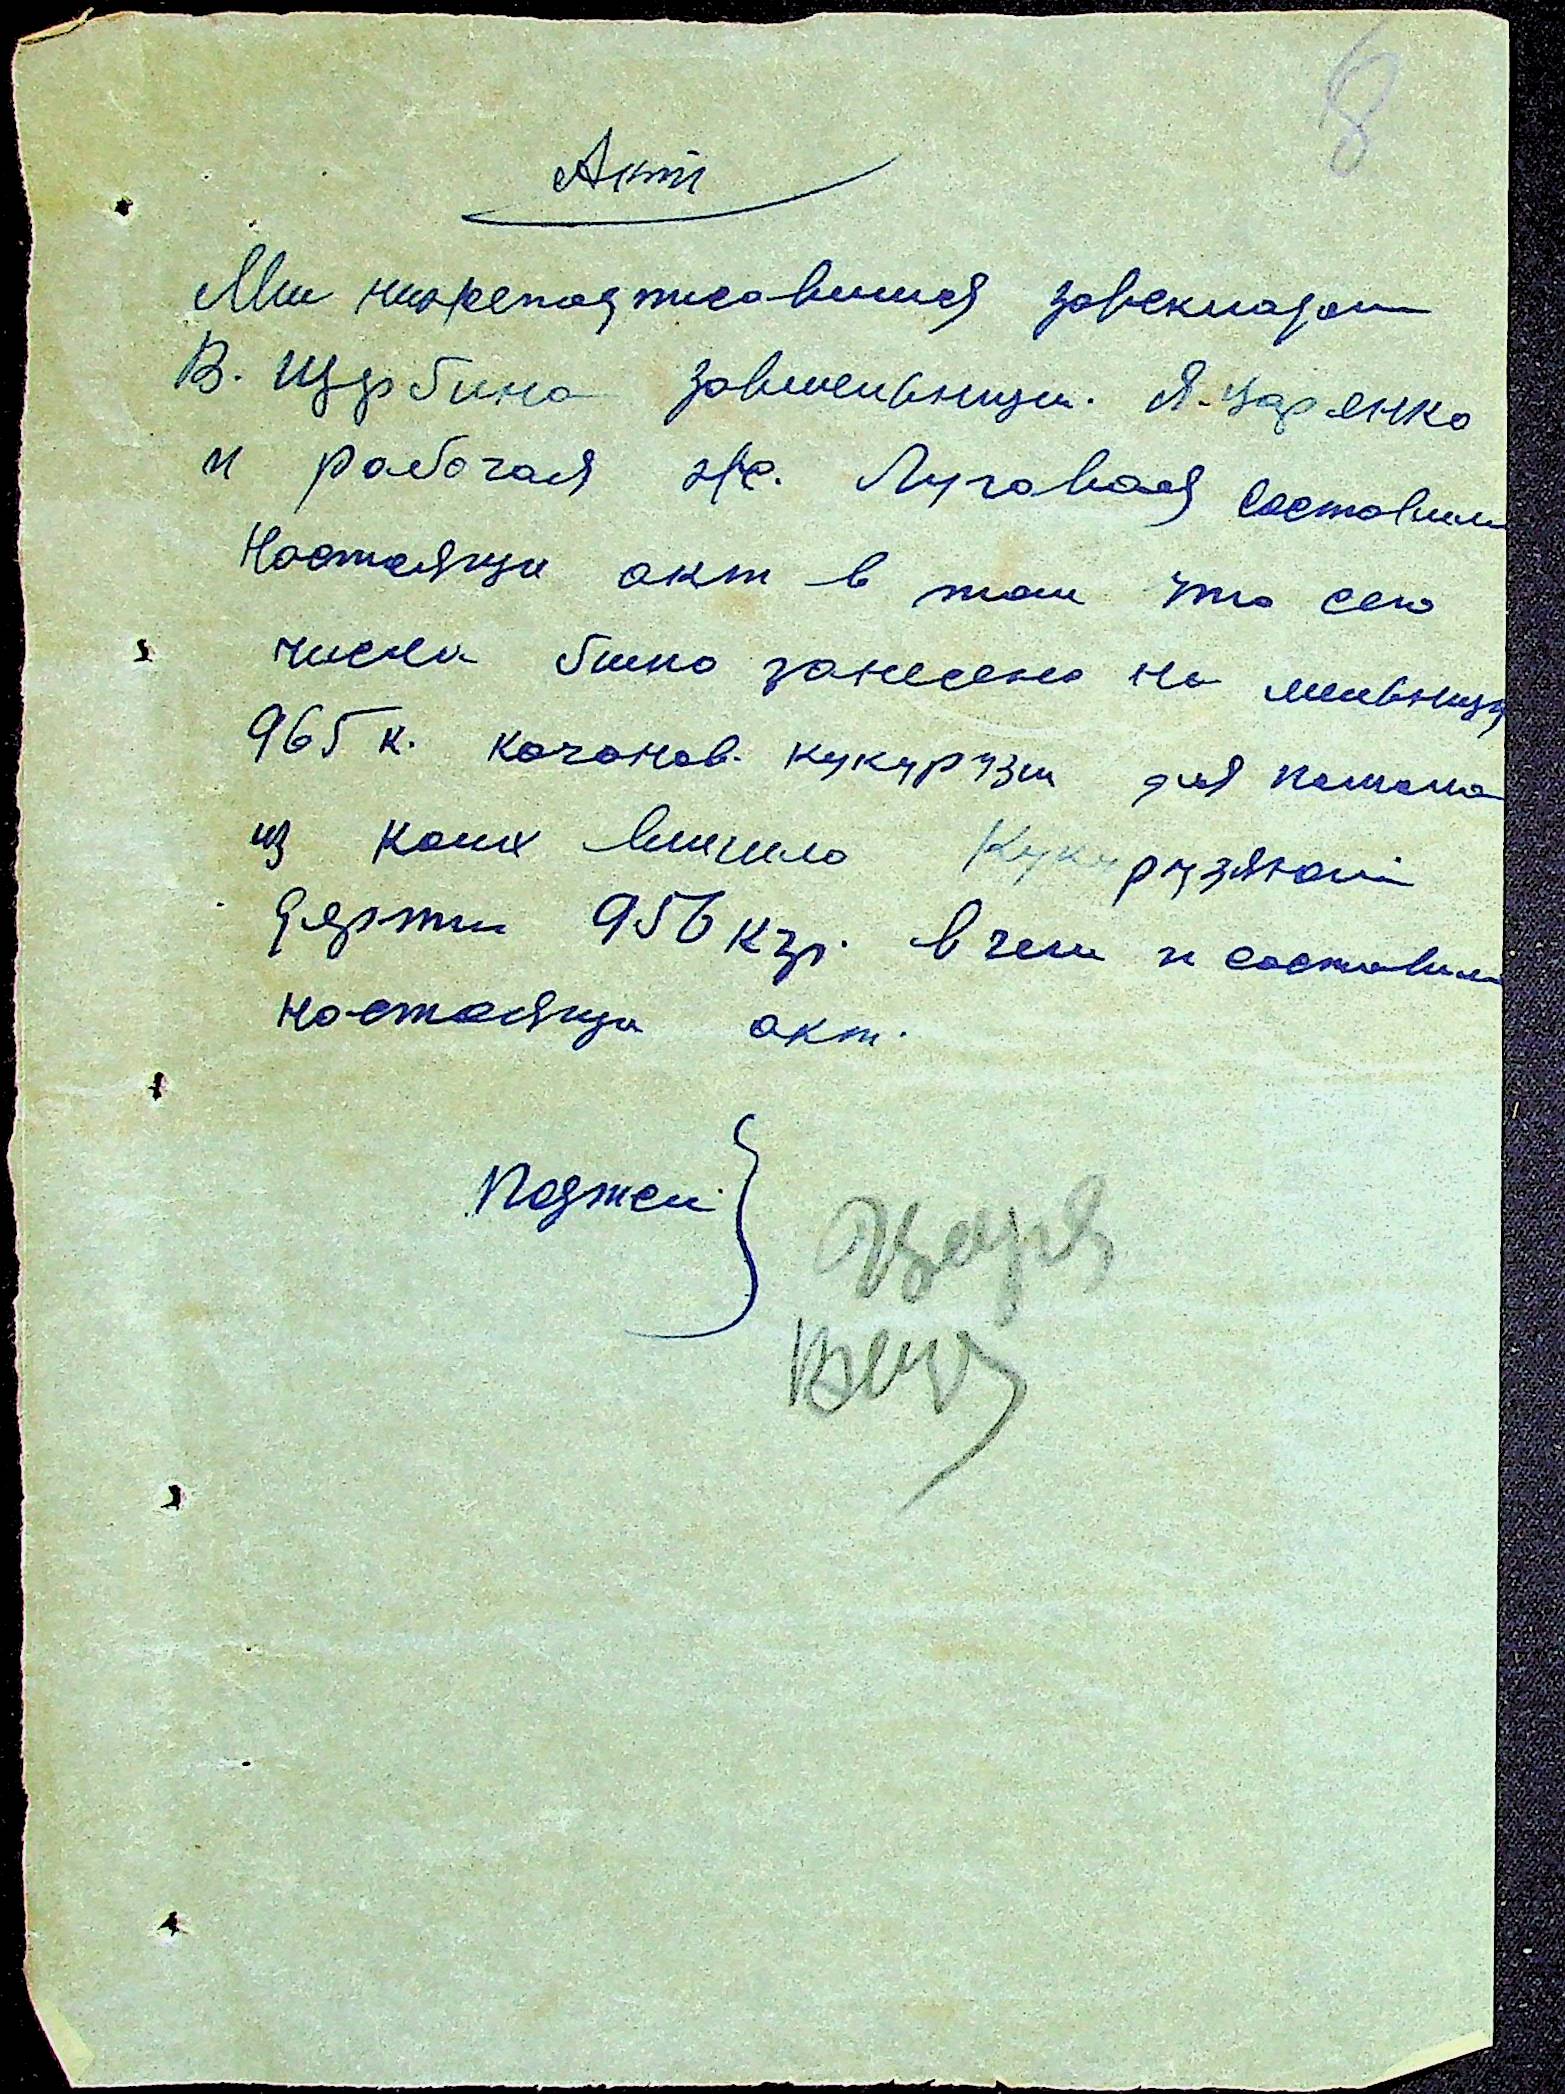 8
Акт
Ми нижеподписавшися завскладом
В. Щербина завмельници. Я. Царенко
и рабочая х/с. Луговая составили
настоящи акт в том что сего
числа было занесено на мельницу
965 к. качанов. кукурузи для помола
из коих вишло кукурузяной
дерти 956 кгр. в чем и составили
настоящи акт.
Подписи
Царе